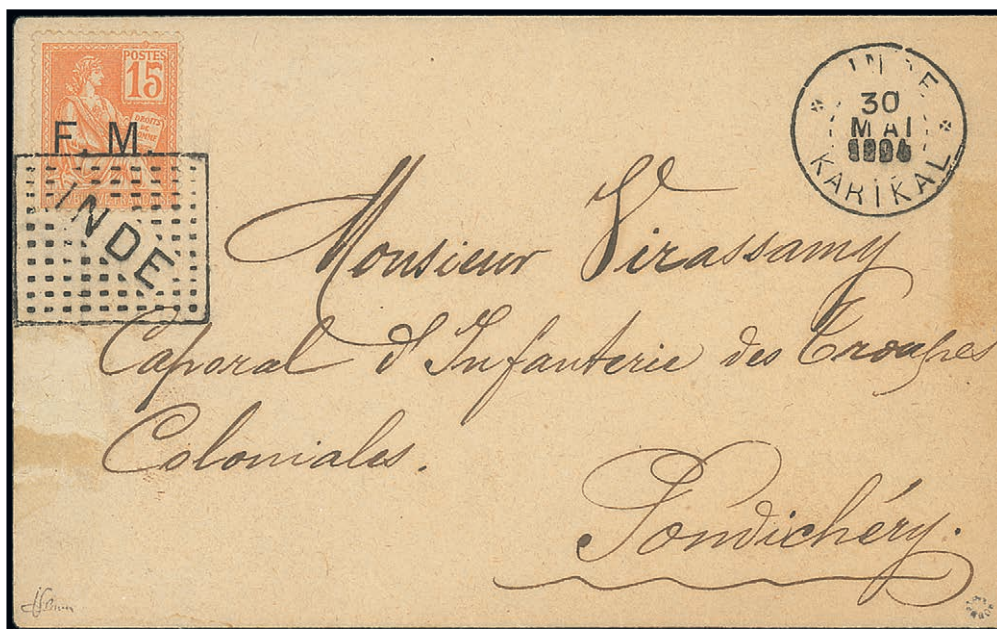 POSTES
15
DROITS
DE
F. M.
INDE
INDE
30
MAI
KARIKAL
Monsieur Virassamy
Caporal d'Infanterie des Troupes
Coloniales.
Pondichéry.